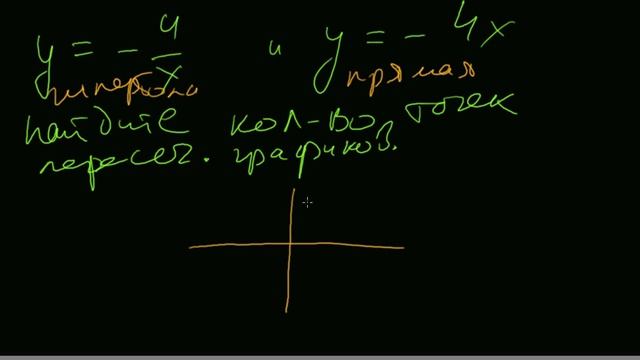 y = - 4/x и y = - 4x
гипербола прямая
найдите кол-во точек
пересеч. графиков.